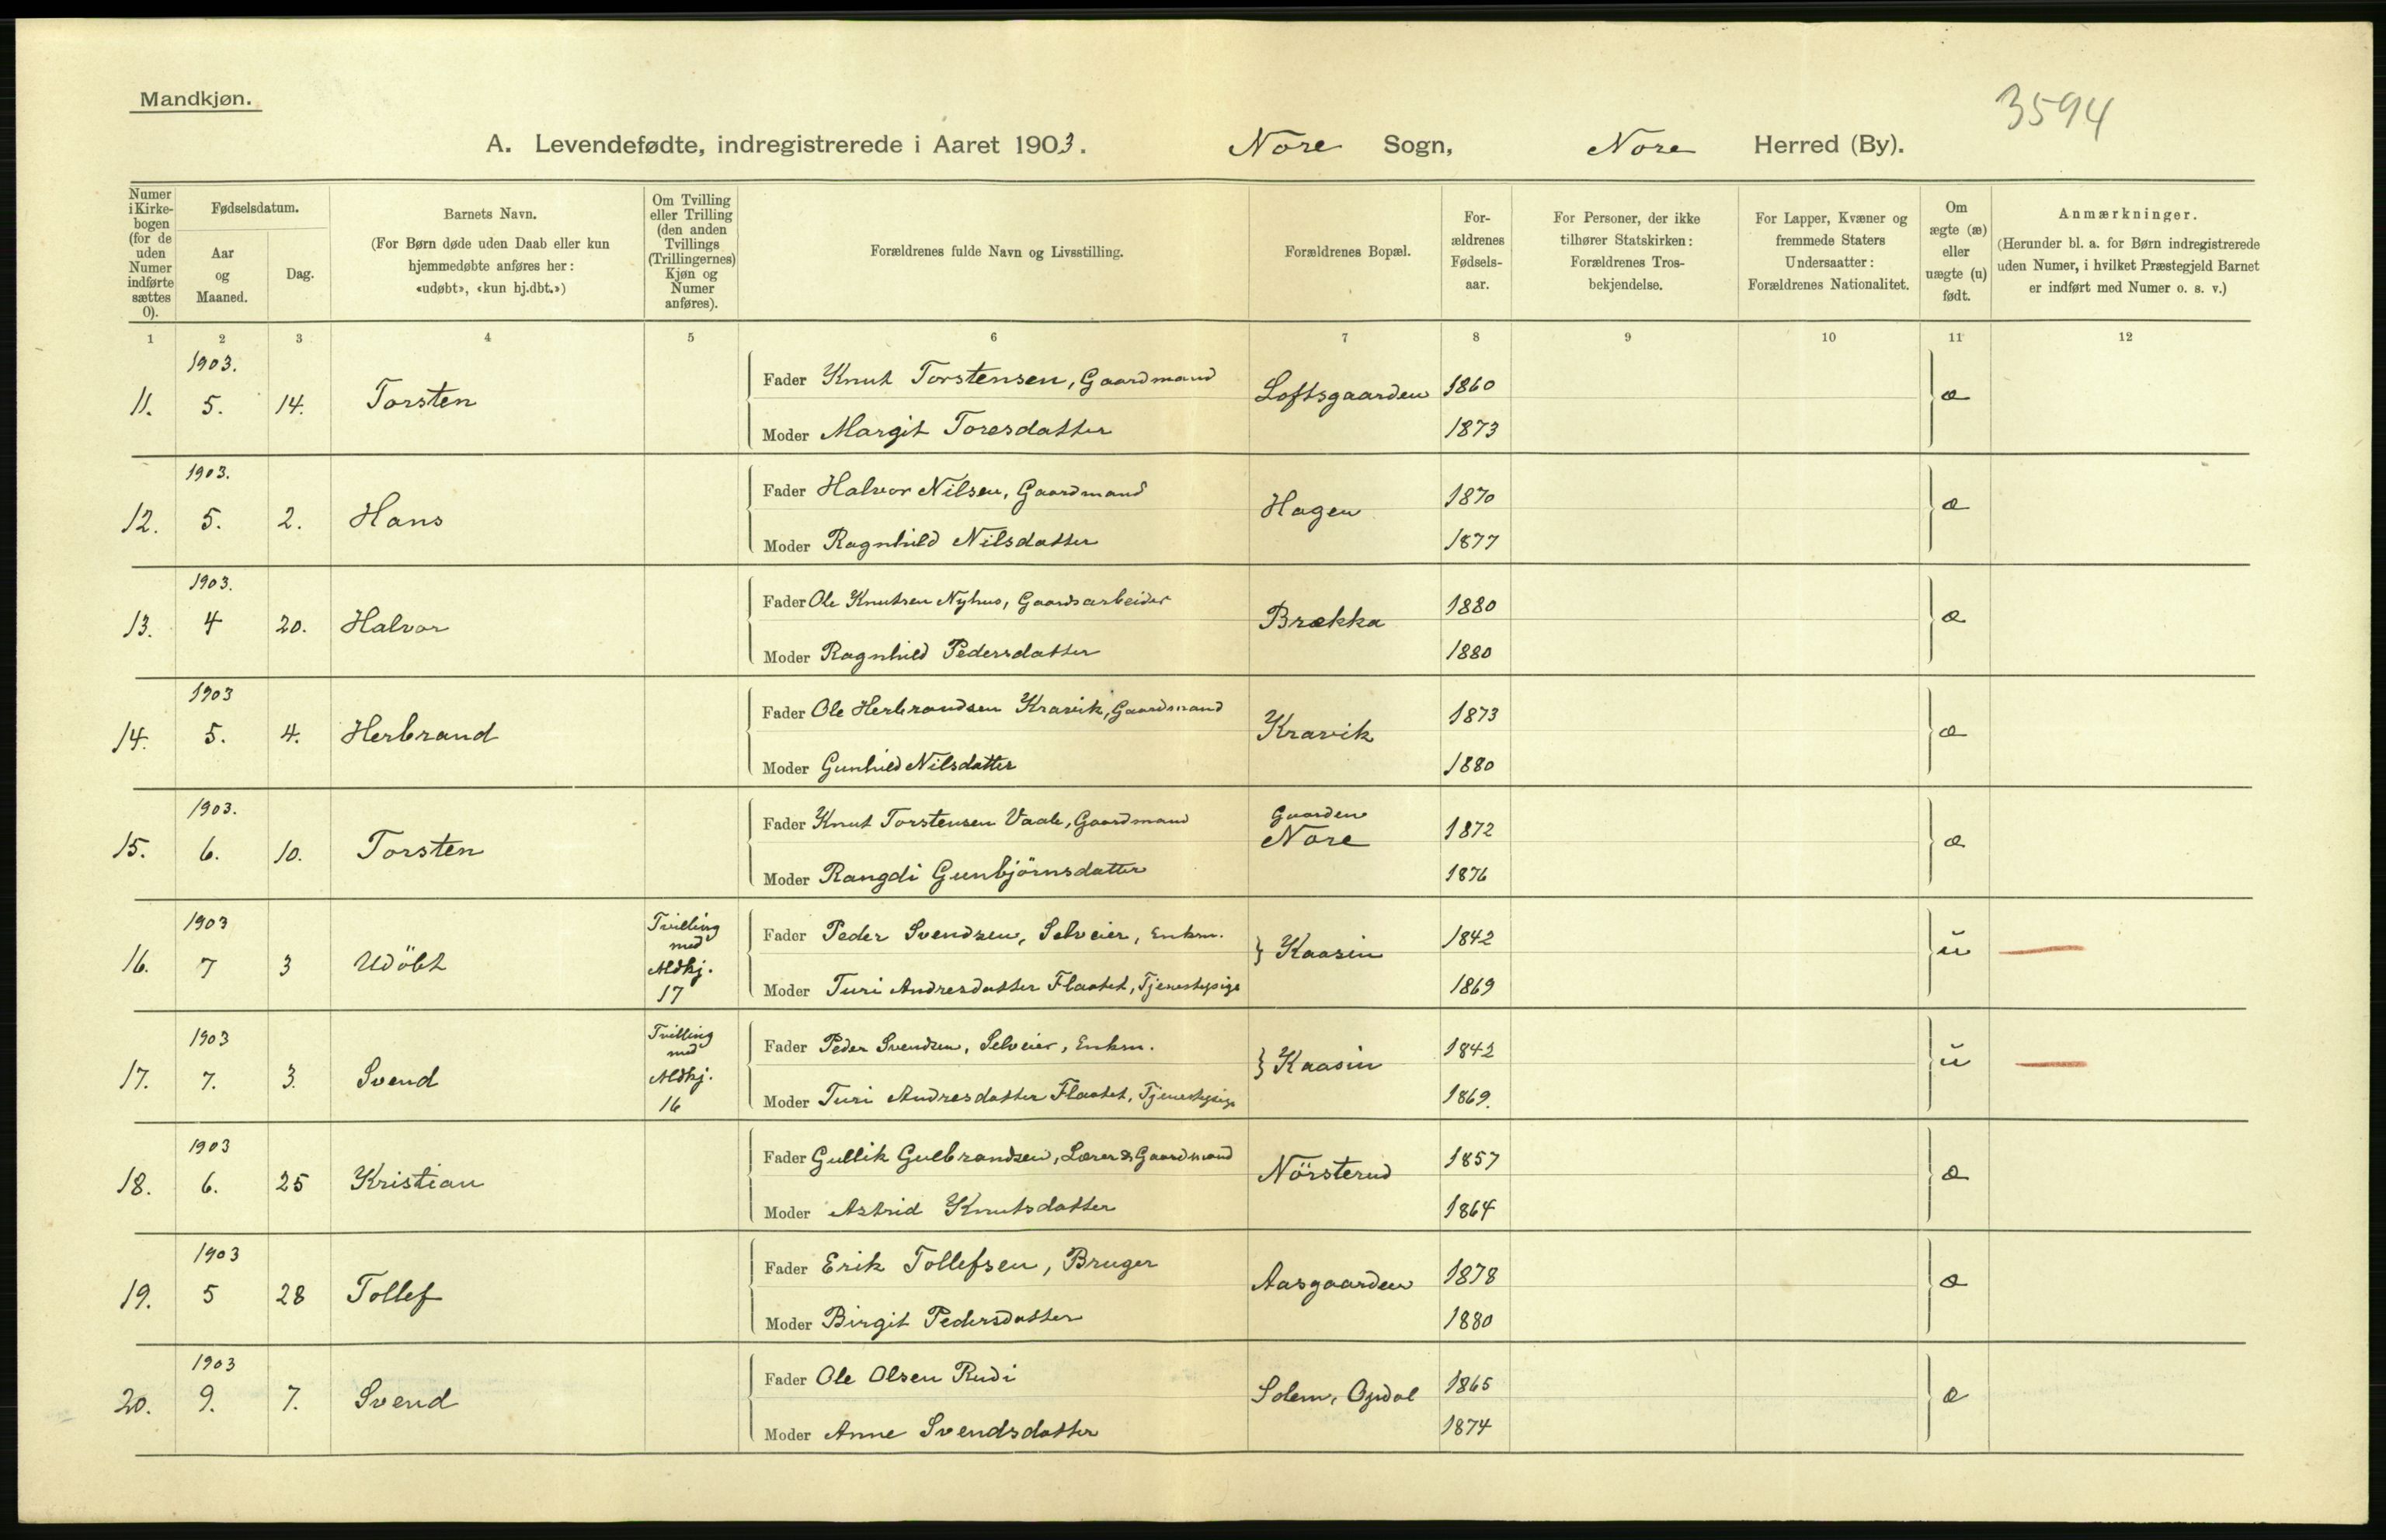 Mandkjøn.
3594
A. Levendefødte, indregistrerede i Aaret 1903. Nore Sogn, Nore Herred (By).
Numer i Kirke-bogen (for de uden Numer indførte sættes 0).
Fødselsdatum.
Aar og Maaned.
Dag.
Barnets Navn.
(For Børn døde uden Daab eller kun hjemmedøbte anføres her: «udøbt», «kun hj.dbt.»)
Om Tvilling eller Trilling (den anden Tvillings (Trillingernes) Kjøn og Numer anføres).
Forældrenes fulde Navn og Livsstilling.
Forældrenes Bopæl.
For-ældrenes Fødsels-aar.
For Personer, der ikke tilhører Statskirken: Forældrenes Tros-bekjendelse.
For Lapper, Kvæner og fremmede Staters Undersaatter: Forældrenes Nationalitet.
Om ægte (æ) eller uægte (u) født.
Anmærkninger.
(Herunder bl. a. for Børn indregistrerede uden Numer, i hvilket Præstegjeld Barnet er indført med Numer o. s. v.)
1 2 3 4 5 6 7 8 9 10 11 12
1903.
11. 5. 14. Torsten Fader Knut Torstensen, Gaardmand Loftsgaarden 1860 æ
Moder Margit Toresdatter 1873
1903.
12. 5. 2. Hans Fader Halvor Nilsen, Gaardmand Hagen 1870 æ
Moder Ragnhild Nilsdatter 1877
1903.
13. 4 20. Halvor Fader Ole Knutsen Nyhus, Gaardsarbeider Brækka 1880 æ
Moder Ragnhild Pedersdatter 1880
1903
14. 5. 4. Herbrand Fader Ole Herbrandsen Kravik, Gaardmand Kravik 1873 æ
Moder Gunhild Nilsdatter 1880
1903.
15. 6. 10. Torsten Fader Knut Torstensen Vaale, Gaardmand Gaarden Nore 1872 æ
Moder Rangdi Gunbjörnsdatter 1876
1903
16. 7 3 Udöbt Tvilling med Mdkj. 17 Fader Peder Svendsen, Selveier, Enkm. } Kaasin 1842 u
Moder Turi Andresdatter Flaatet, Tjenestepige 1869
1903
17. 7. 3. Svend Tvilling med Mdkj. 16 Fader Peder Svendsen, Selveier, Enkm. } Kaasin 1842 u
Moder Turi Andresdatter Flaatet, Tjenestepige 1869.
1903
18. 6. 25 Kristian Fader Gullik Gulbrandsen, Lærer & Gaardmand Nörsterud 1857 æ
Moder Astrid Knutsdatter 1864
1903
19. 5 28 Tollef Fader Erik Tollefsen, Bruger Aasgaarden 1878 æ
Moder Birgit Pedersdatter 1880
1903
20. 9. 7. Svend Fader Ole Olsen Rudi Solem, Opdal 1865 æ
Moder Anne Svendsdatter 1874